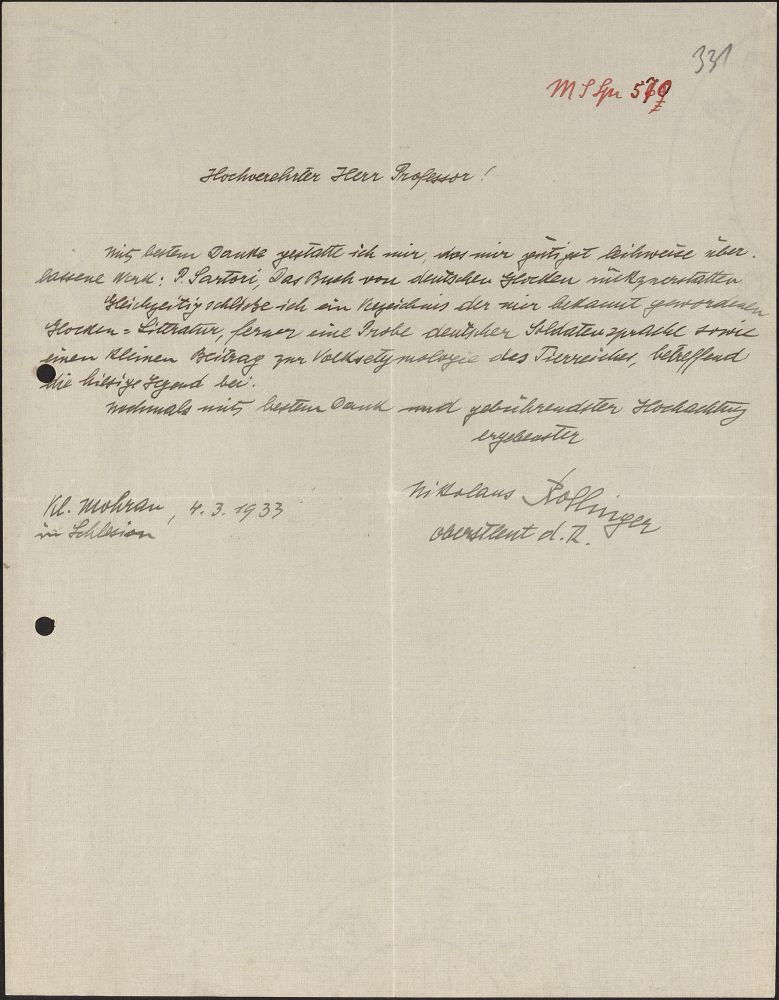 331
M S Spr 570
Hochverehrter Herr Professor!
Mit bestem Danke gestatte ich mir, das mir gütigst leihweise über-
lassene Werk: P. Sartori, Das Buch von deutschen Glocken rückzuerstatten
Gleichzeitig schließe ich ein Verzeichnis der mir bekannt gewordenen
Glocken=Litteratur, ferner eine Probe deutscher Soldatensprache sowie
einen kleinen Beitrag zur Volksetymologie des Tierreiches, betreffend
die hiesige Gegend bei.
Nochmals mit bestem Dank und gebührendster Hochachtung
ergebenster
Nikolaus Rollinger
Oberstleut d. R.
Kl. Mohrau, 4. 3. 1933
in Schlesien